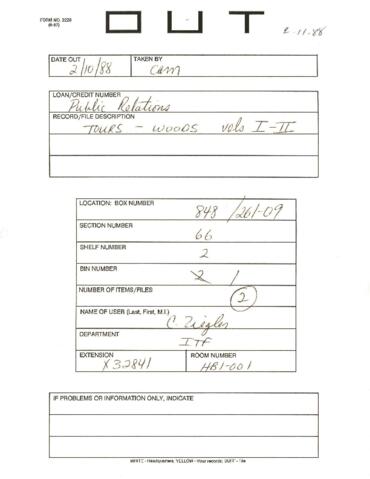 FORM NO. 2228
OUT
2-11-88
DATE OUT
TAKEN BY
2/10/88
LOAN/CREDIT NUMBER
Public Relations
RECORD/FILE DESCRIPTION
TOURS - WOODS vols I-II
LOCATION: BOX NUMBER
848/261-09
SECTION NUMBER
66
SHELF NUMBER
2
BIN NUMBER
2 1
NUMBER OF ITEMS/FILES
2
NAME OF USER (Last, First, M.I.)
C. Ziegler
DEPARTMENT
ITF
EXTENSION
ROOM NUMBER
X32841
HB1-001
IF PROBLEMS OR INFORMATION ONLY, INDICATE
WHITE - Headquarters; YELLOW - Your records; BUFF - File